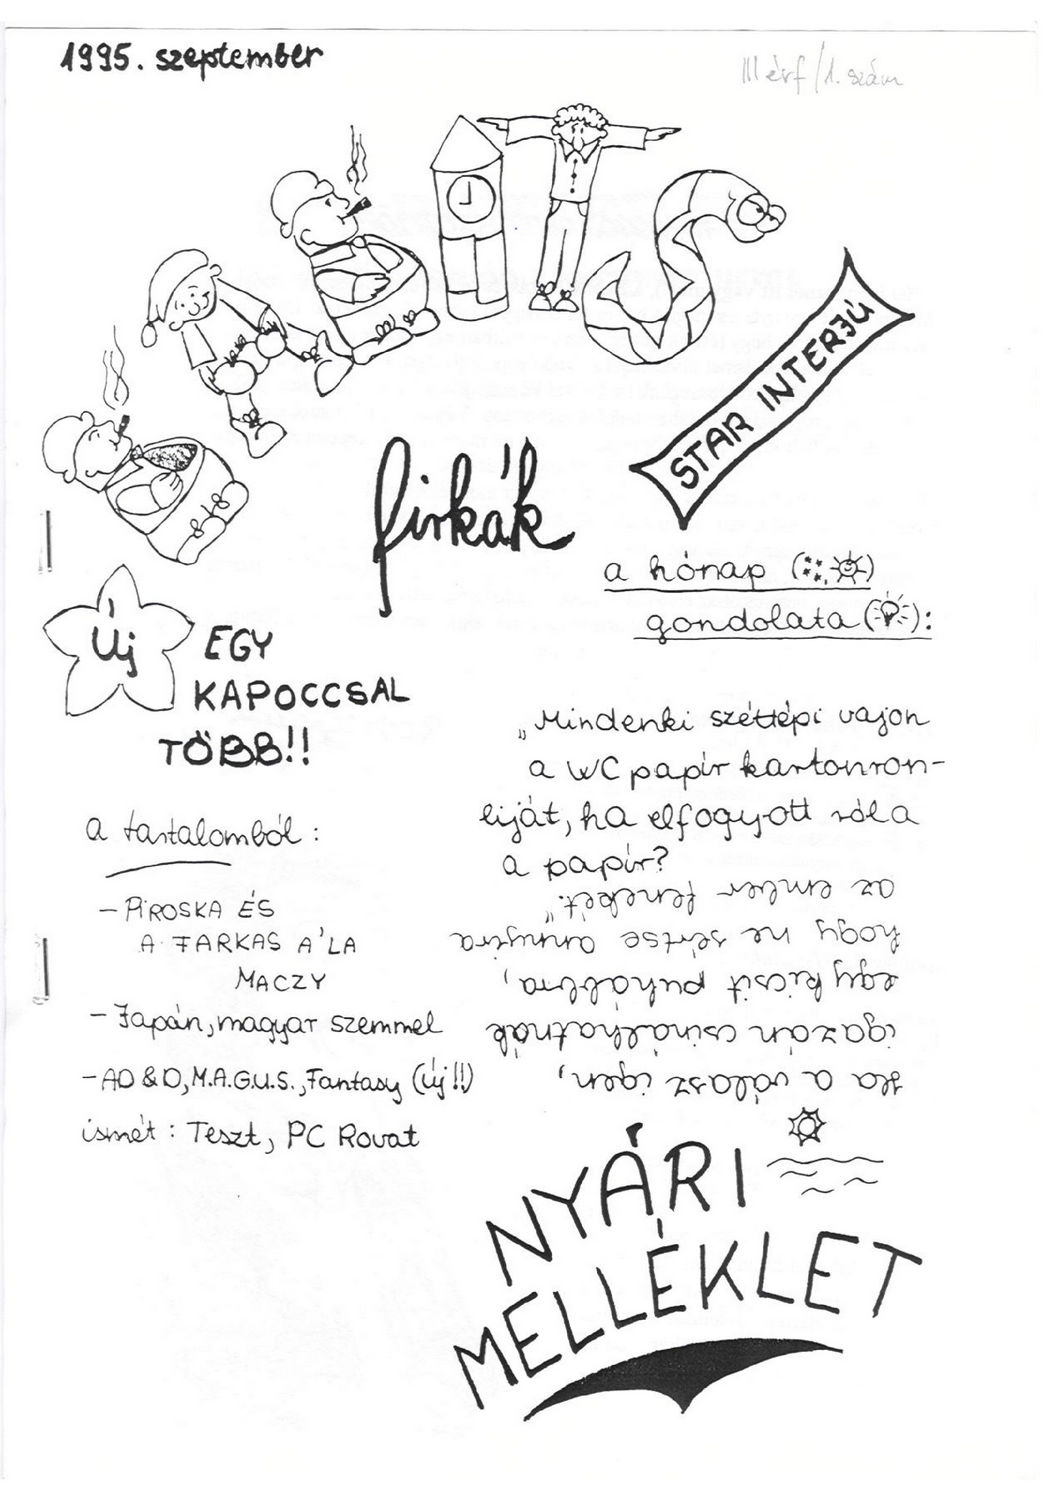 1995. szeptember
III évf/1. szám
BABITS
STAR INTERJÚ
firkák
a hónap
gondolata ( ):
Új EGY
KAPOCCSAL
TÖBB!!
"Mindenki széttépi vajon
a WC papír kartonron-
liját, ha elfogyott róla
a papír?
Ha a válasz igen,
igazán csinálhatnák
egy kicsit puhábbra,
hogy ne sértse annyira
az ember fenekét."
a tartalomból:
- PIROSKA ÉS
A FARKAS A'LA
MACZY
- Japán, magyar szemmel
- AD&D, M.A.G.U.S., Fantasy (új!!)
ismét: Teszt, PC Rovat
NYÁRI
MELLÉKLET